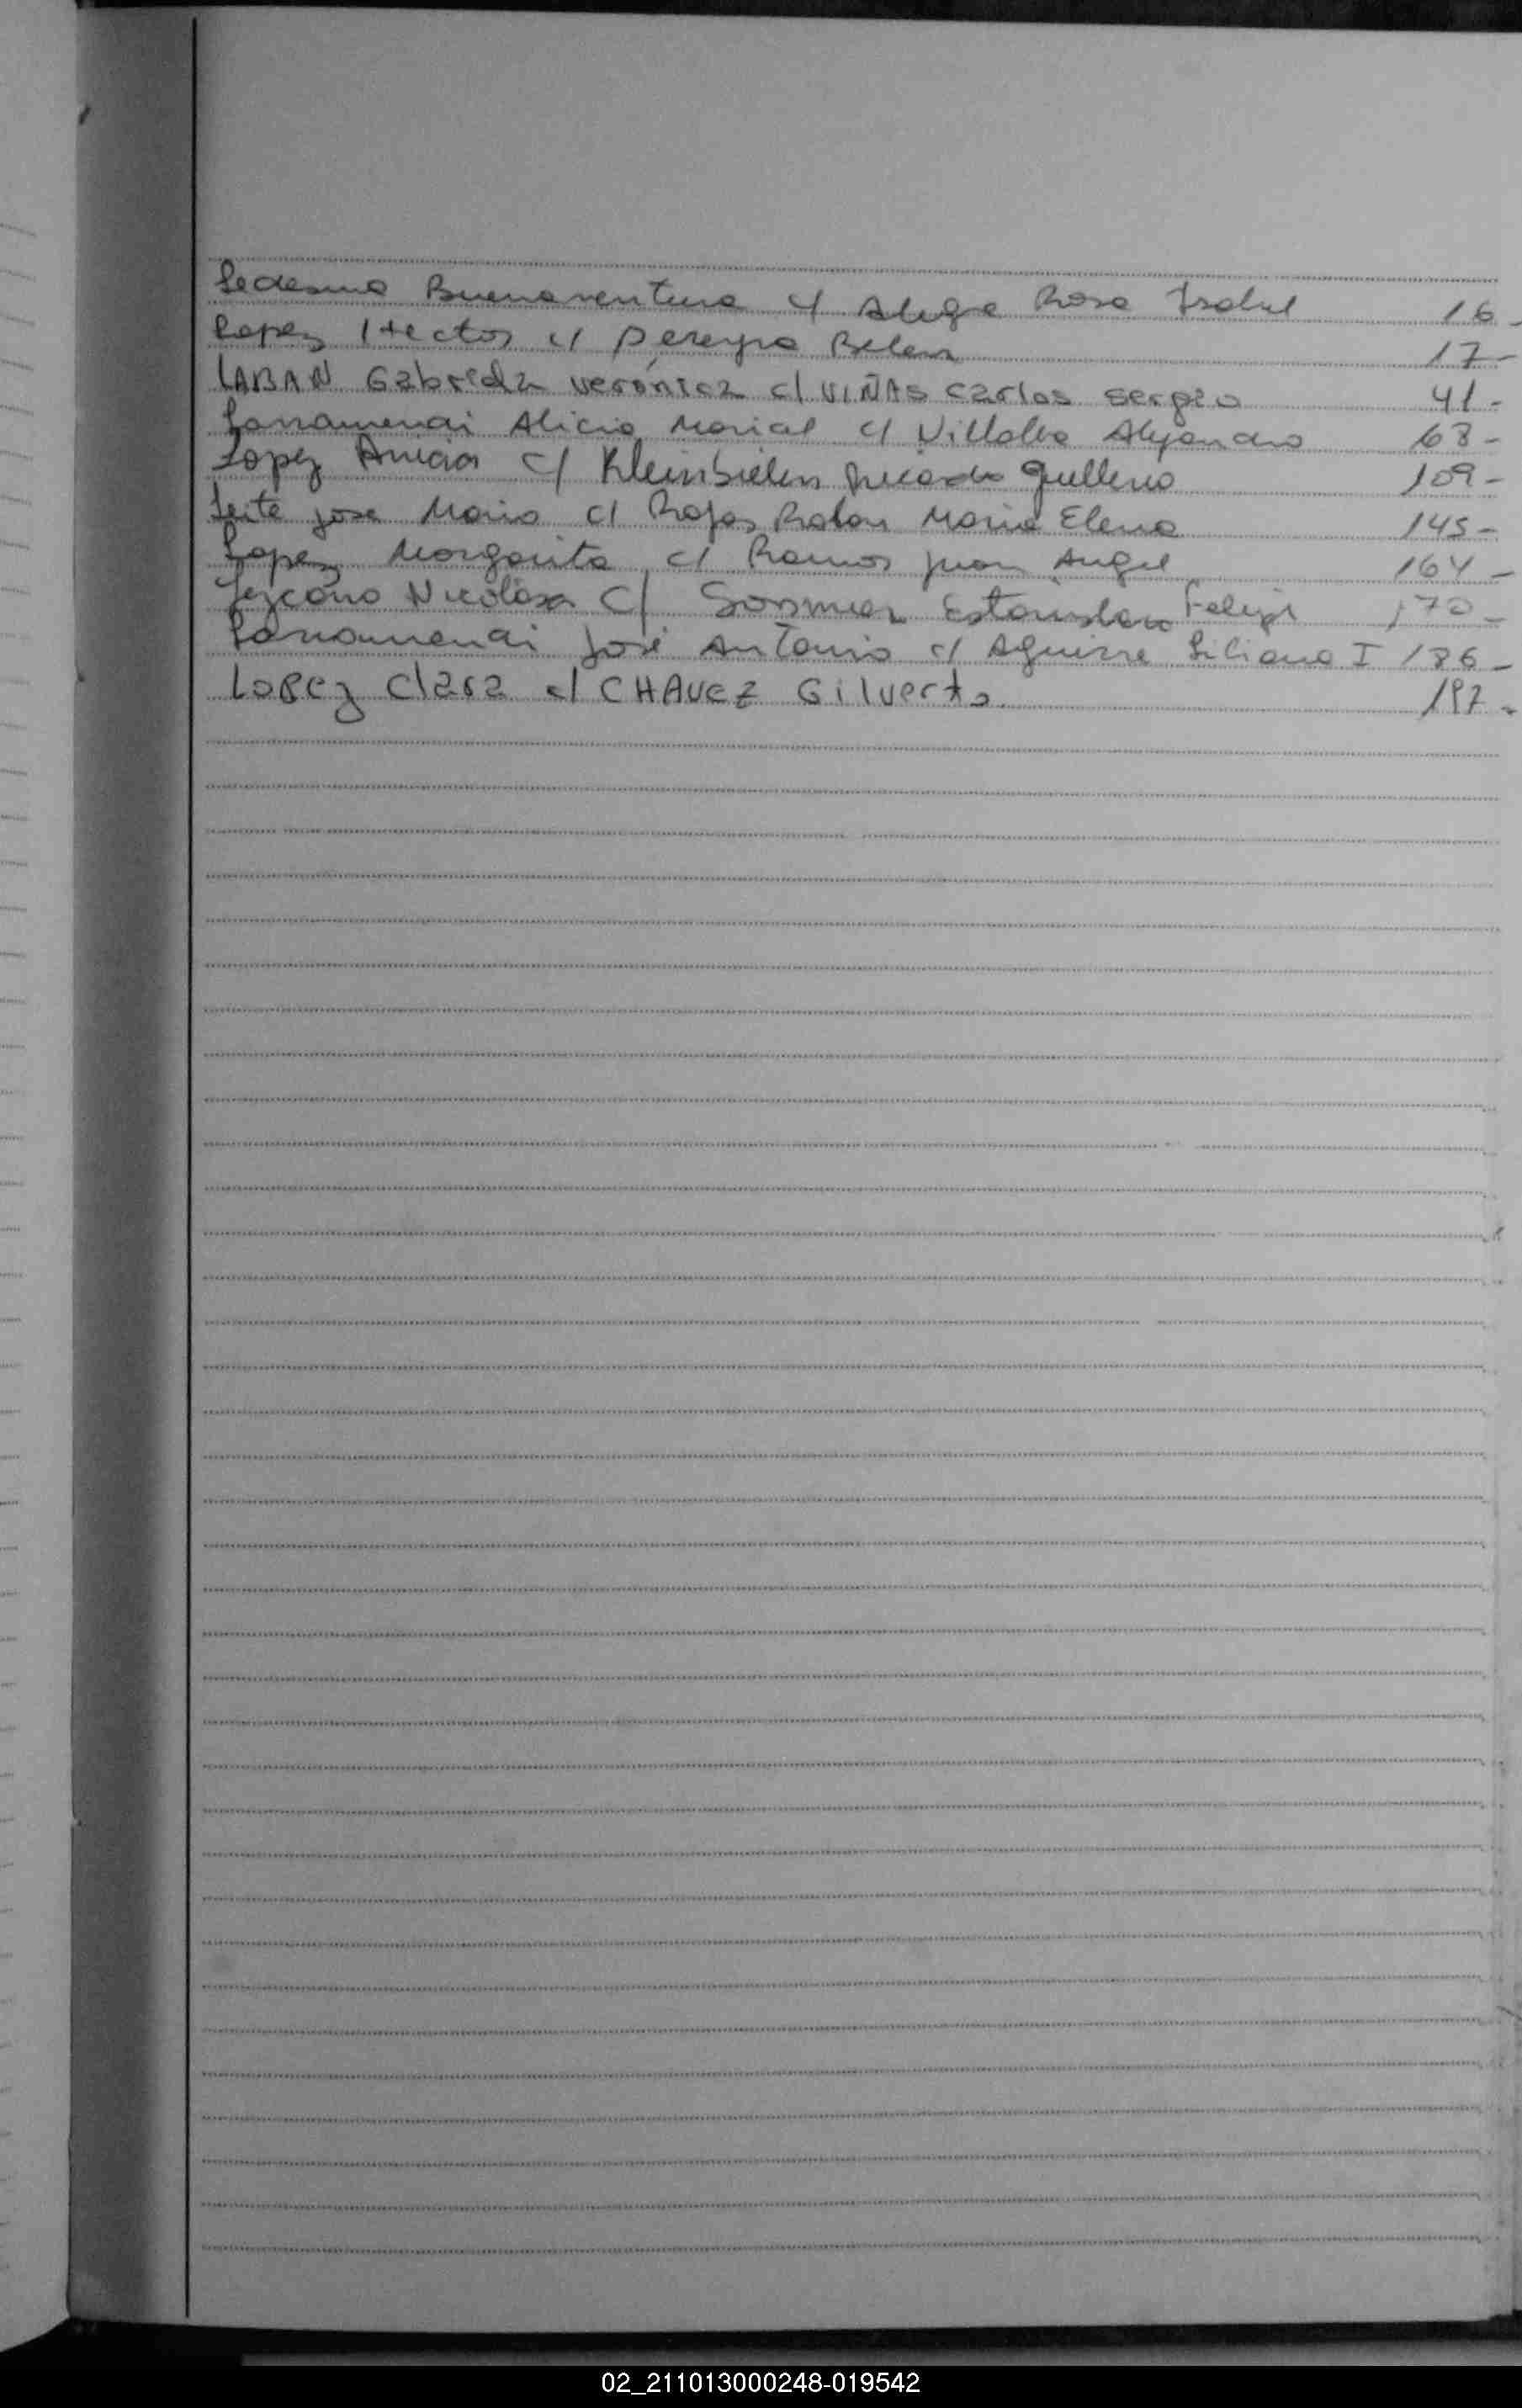 Ledesma Buenaventura c/ Alegre Rosa Isabel 16-
Lopez Hector c/ Pereyra Belen 17-
LABAN Gabriela verónica c/ VIÑAS carlos sergio 41-
Larramendi Alicia c/ Villalba Alejandro 68-
Lopez c/ Ricardo 109-
Leite jose Mario c/ Rojas Maria Elena 145-
Lopez Margarita c/ Ramos juan Angel 164-
Lezcano Nicolasa c/ Estanislao Felipe 170-
Larramendi José Antonio c/ Aguirre Liliana I 186-
Lopez Clara c/ CHAVEZ Gilverto 197-
02_211013000248-019542